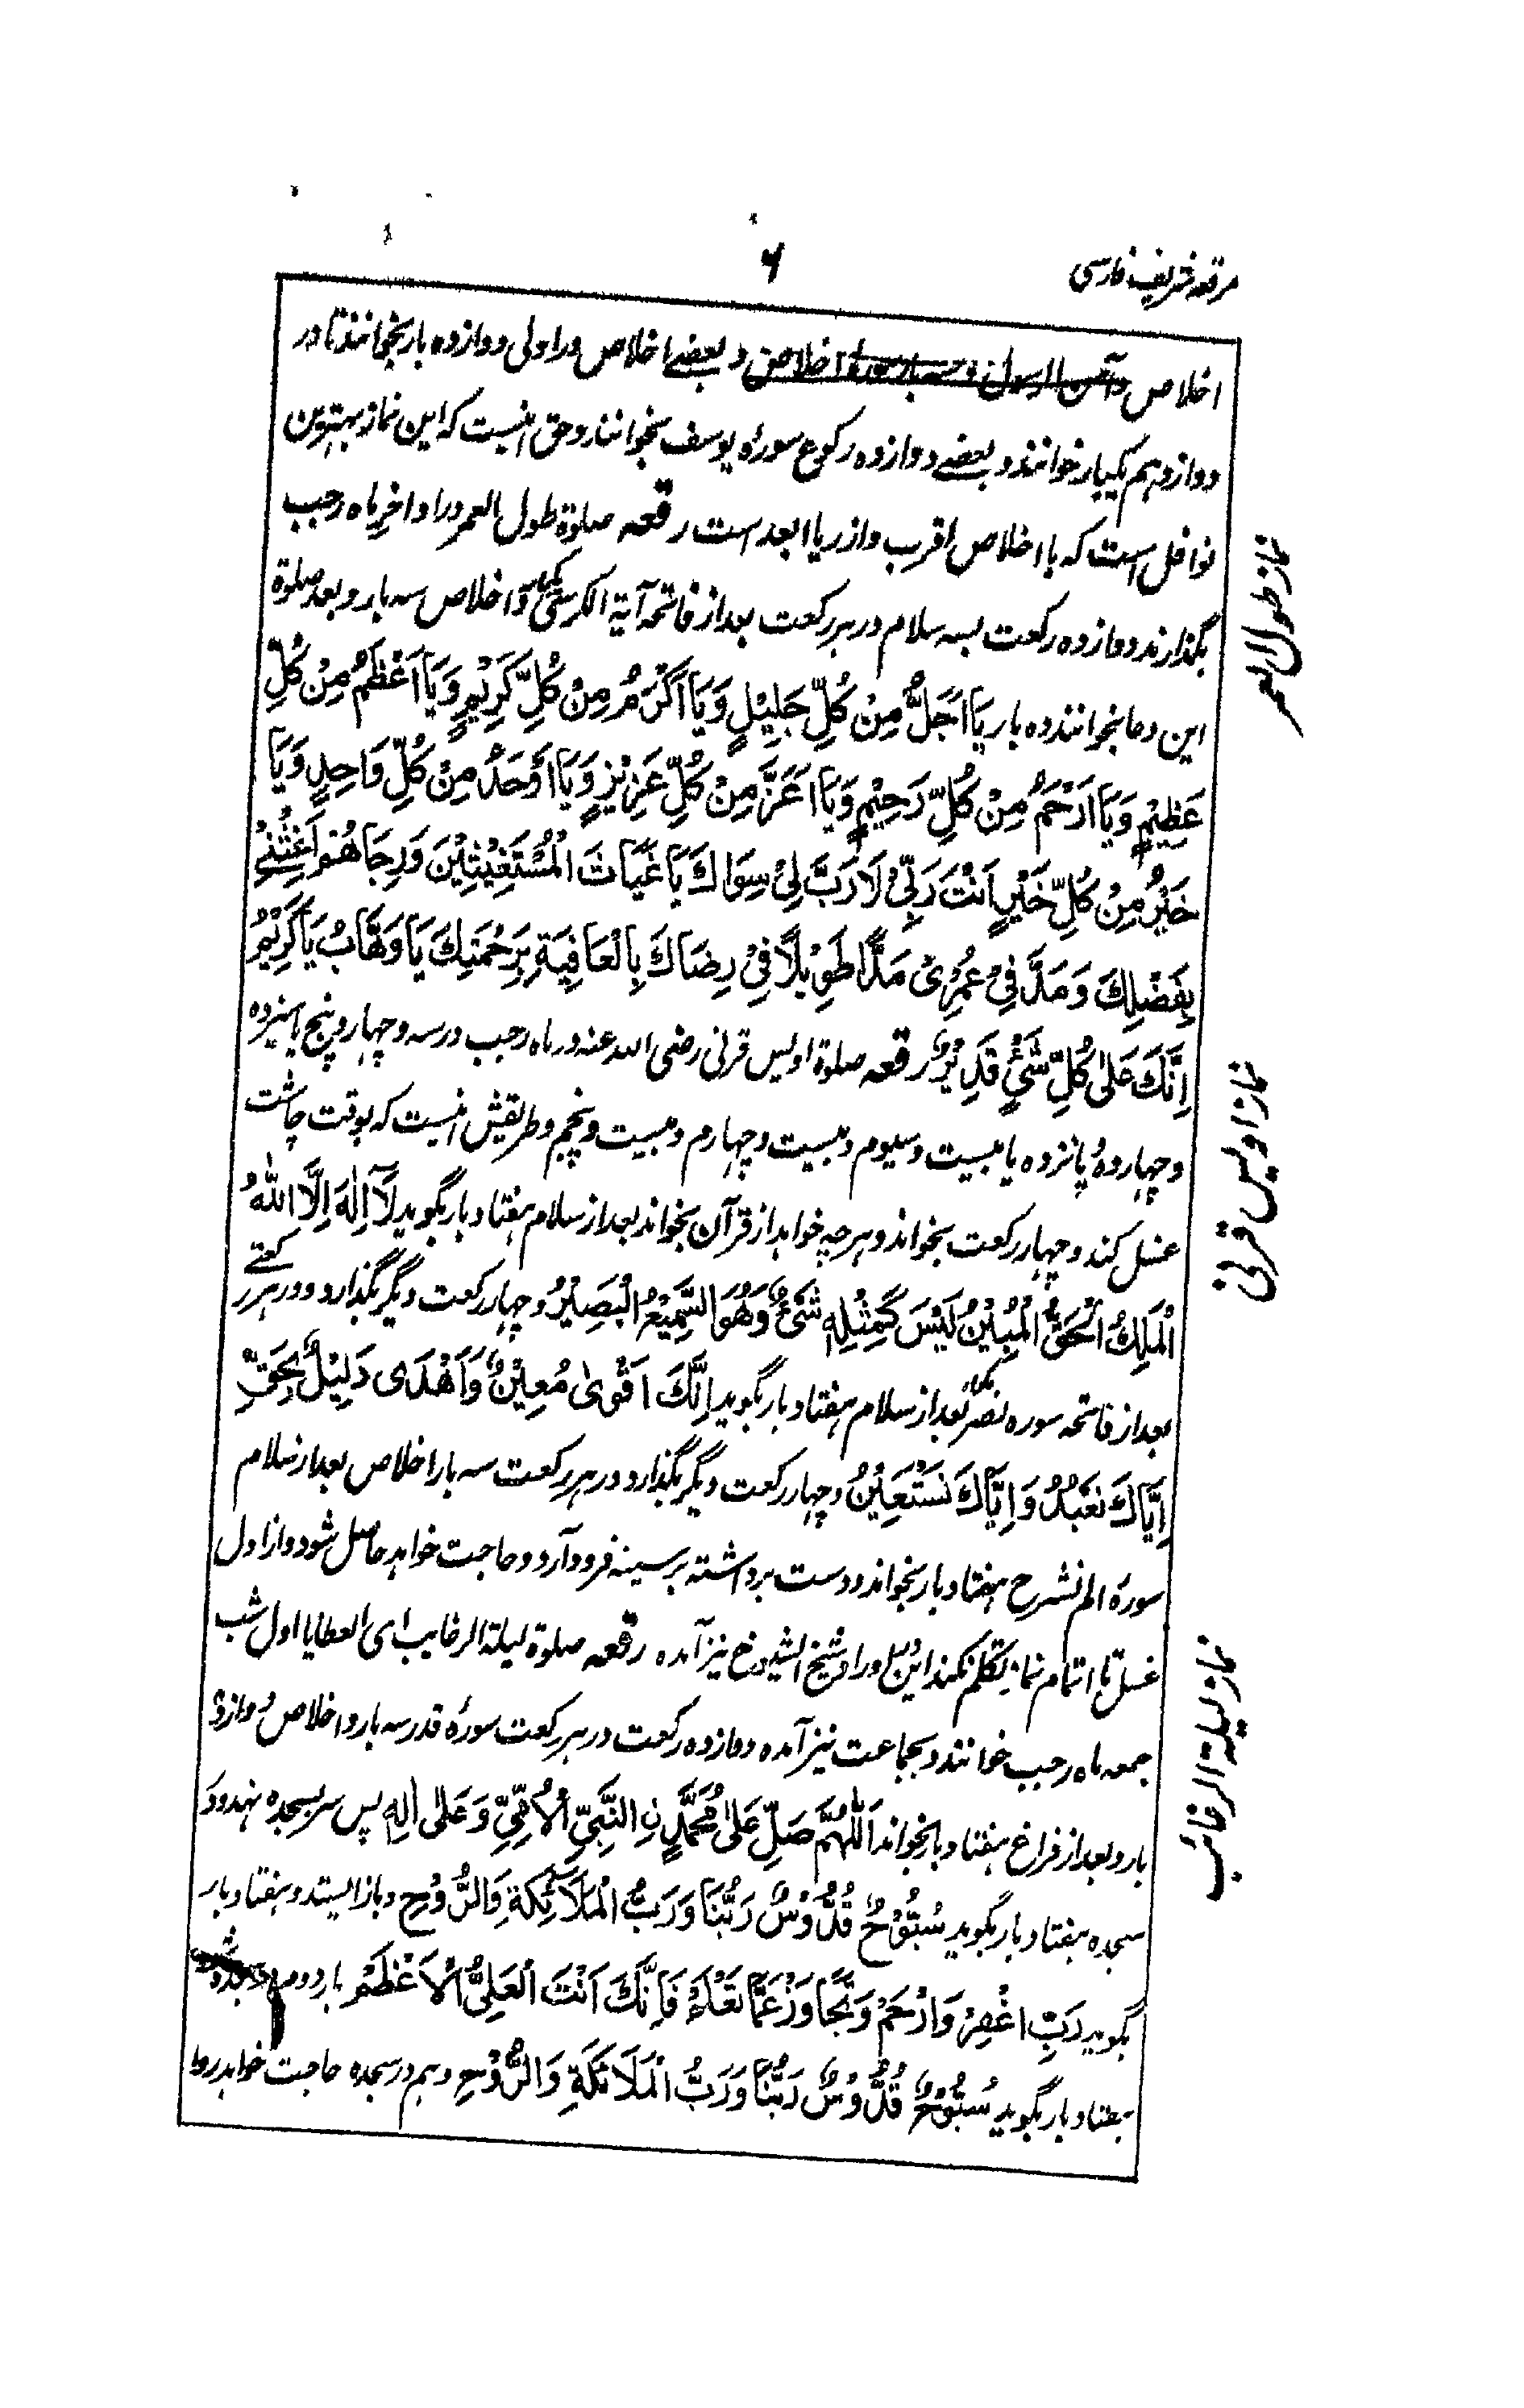 مرقعہ شریف فارسی
۶
اخلاص و آمن الرسول و سہ بار سورۂ اخلاص و بعضے اخلاص در اولی دوازدہ بار بخوانند تا در
دوازدہم یکبار خوانند و بعضے دوازدہ رکوع سورۂ یوسف بخوانند و حق اینست کہ این نماز بہترین
نوافل است کہ با اخلاص اقرب و از ریا ابعد است رقعہ صلوۃ طول العمر در اواخر ماہ رجب
بگذارند دوازدہ رکعت بسہ سلام در ہر رکعت بعد از فاتحہ آیۃ الکرسی یکبار و اخلاص سہ بار و بعد صلوۃ
این دعا بخوانند دہ بار یَا اَجَلُّ مِنْ کُلِّ جَلِیْلٍ وَیَا اَکْرَمُ مِنْ کُلِّ کَرِیْمٍ وَیَا اَعْظَمُ مِنْ کُلِّ
عَظِیْمٍ وَیَا اَرْحَمُ مِنْ کُلِّ رَحِیْمٍ وَیَا اَعَزَّ مِنْ کُلِّ عَزِیْزٍ وَیَا اَوْحَدُ مِنْ کُلِّ وَاحِدٍ وَیَا
خَیْرُ مِنْ کُلِّ خَیْرٍ اَنْتَ رَبِّیْ لَا رَبَّ لِیْ سِوَاکَ یَا غَیَّاثَ الْمُسْتَغِیْثِیْنَ وَرِجَاهُمْ اَغِثْنِیْ
بِفَضْلِکَ وَمَدَّ فِیْ عُمْرِیْ مَدًّا طَوِیْلًا فِیْ رِضَاکَ بِالْعَافِیَةِ بِرَحْمَتِکَ یَا وَهَّابُ یَا کَرِیْمُ
اِنَّکَ عَلیٰ کُلِّ شَیْءٍ قَدِیْرٌ رقعہ صلوۃ اویس قرنی رضی اللہ عنہ در ماہ رجب در سہ و چہار و پنج یا سیزدہ
و چہاردہ و پانزدہ یا بیست و سیوم و بیست و چہارم و بیست و پنجم و طریقش اینست کہ بوقت چاشت
غسل کند و چہار رکعت بخواند و ہرچہ خواہد از قرآن بخواند بعد از سلام ہفتاد بار بگوید لَا اِلٰهَ اِلَّا اللهُ
الْمَلِکُ الْحَقُّ الْمُبِیْنُ لَیْسَ کَمِثْلِهِ شَیْءٌ وَهُوَ السَّمِیْعُ الْبَصِیْرُ و چہار رکعت دیگر بگذارد و در ہر رکعتے
بعد از فاتحہ سورہ نصر یکبار بعد از سلام ہفتاد بار بگوید اِنَّکَ اَقْویٰ مُعِیْنٌ وَاَهْدَی دَلِیْلٌ بِحَقِّ
اِیَّاکَ نَعْبُدُ وَاِیَّاکَ نَسْتَعِیْنُ و چہار رکعت دیگر بگذارد و در ہر رکعت سہ بار اخلاص بعد از سلام
سورۂ الم نشرح ہفتاد بار بخواند و دست برداشتہ بر سینہ فرود آرد و حاجت خواہد حاصل شود و از اول
غسل تا اتمام نماز تکلم نکند این در اوراد شیخ الشیوخ نیز آمدہ رقعہ صلوۃ لیلۃ الرغایب ای العطایا اول شب
جمعہ ماہ رجب خوانند و بجماعت نیز آمدہ دوازدہ رکعت در ہر رکعت سورۂ قدر سہ بار و اخلاص دوازدہ
بار و بعد از فراغ ہفتاد بار بخواند اَللّٰهُمَّ صَلِّ عَلیٰ مُحَمَّدٍ نِ النَّبِیِّ الْاُمِّیِّ وَعَلیٰ اٰلِهِ پس سر بسجدہ نہد و در
سجدہ ہفتاد بار بگوید سُبُّوْحٌ قُدُّوْسٌ رَبُّنَا وَرَبُّ الْمَلَائِکَةِ وَالرُّوْحِ و باز ایستد و ہفتاد بار
بگوید رَبِّ اغْفِرْ وَارْحَمْ وَتَجَاوَزْ عَمَّا تَعْلَمُ فَاِنَّکَ اَنْتَ الْعَلِیُّ الْاَعْظَمُ بار دوم
ہفتاد بار بگوید سُبُّوْحٌ قُدُّوْسٌ رَبُّنَا وَرَبُّ الْمَلَائِکَةِ وَالرُّوْحِ و ہم در سجدہ حاجت خواہد روا
نماز طول العمر
نماز اویس قرنی
نماز لیلۃ الرغائب